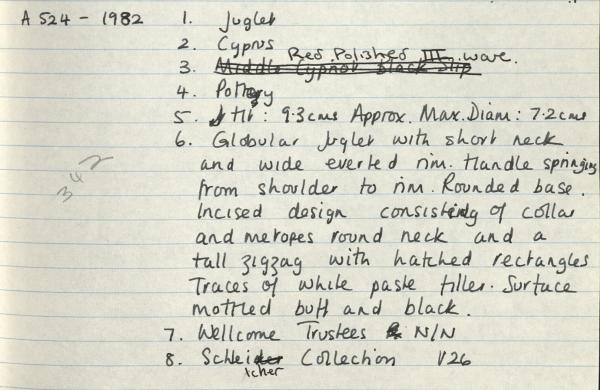 A 524 - 1982 1. Juglet
2. Cyprus
Red Polished III ware.
3. Middle Cypriot black slip
4. Pottery
5. Ht: 9.3cms Approx. Max. Diam: 7.2cms
6. Globular juglet with short neck
and wide everted rim. Handle springing
from shoulder to rim. Rounded base.
Incised design consisting of collar
and metopes round neck and a
tall zigzag with hatched rectangles
Traces of white paste filler. Surface
mottled buff and black.
342
7. Wellcome Trustees N/N
8. Schleicher Collection V26